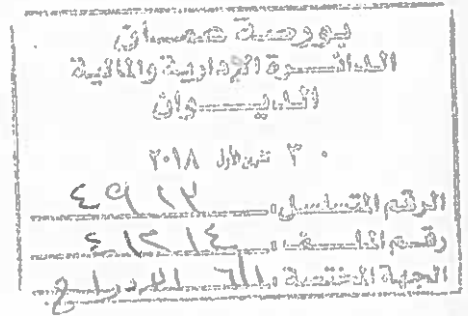 بورصة عمان
الدائرة الإدارية والمالية
الديوان
٣٠ تشرين الأول ٢٠١٨
الرقم المتسلسل: ٤٩٢٧
رقم الملف: ٤١٢١٤
الجهة المختصة: الإدراج